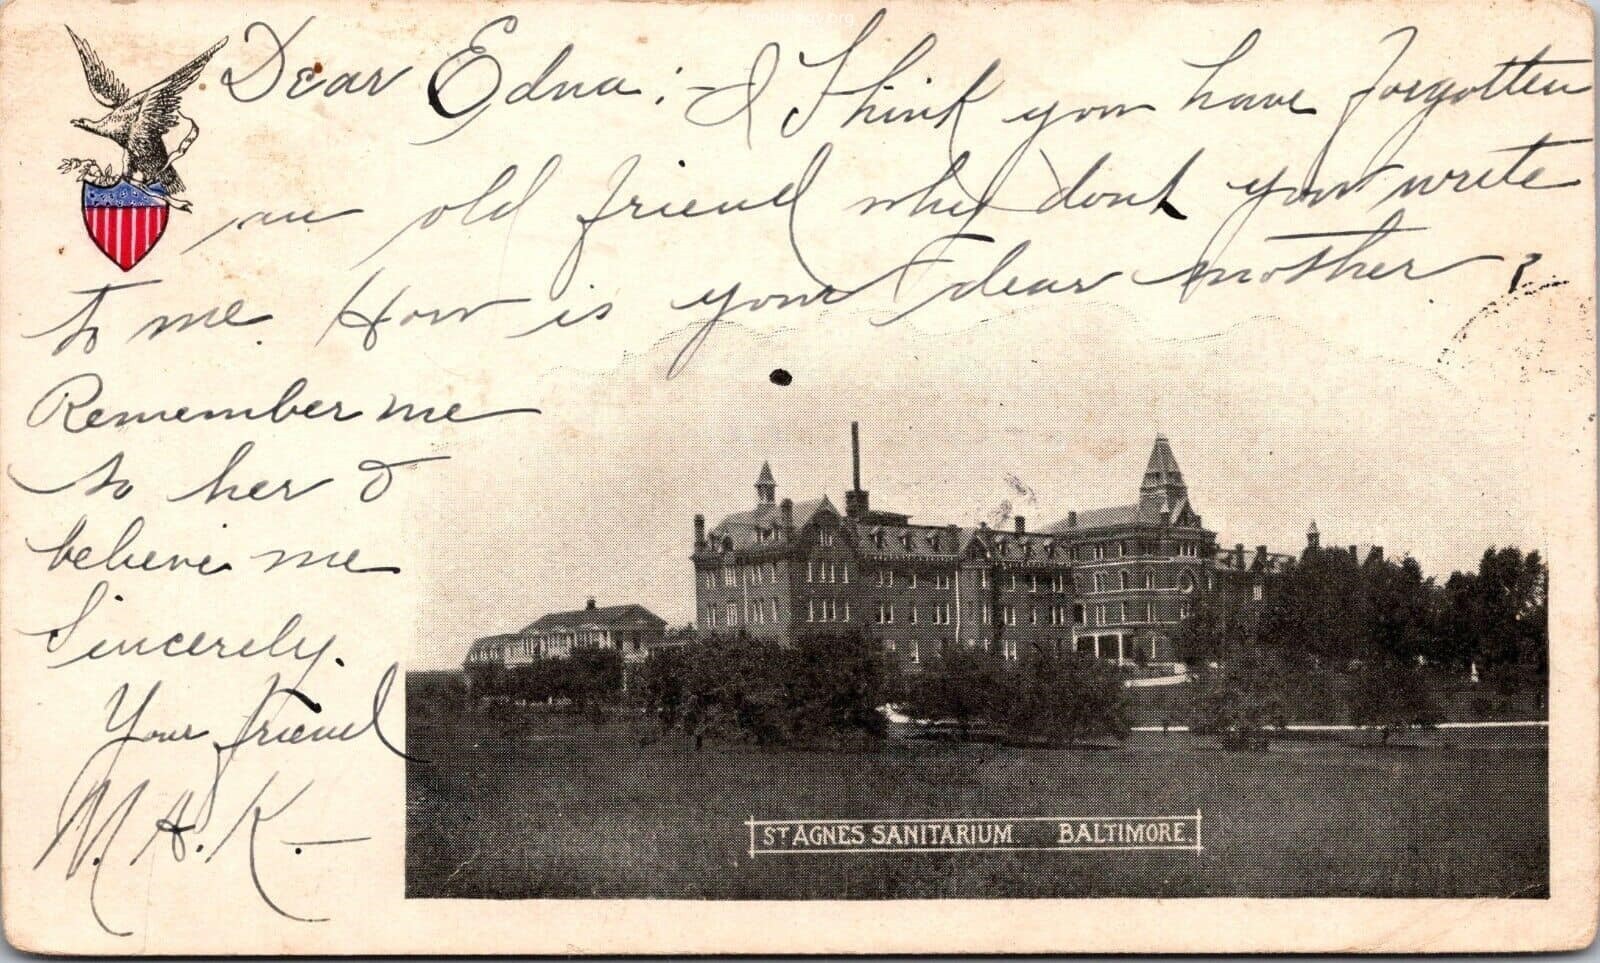 Dear Edna:- I think you have forgotten
an old friend why dont you write
to me. How is your dear mother?
Remember me
to her &
believe me
Sincerely.
Your friend
M. A. K. -
ST AGNES SANITARIUM. BALTIMORE.